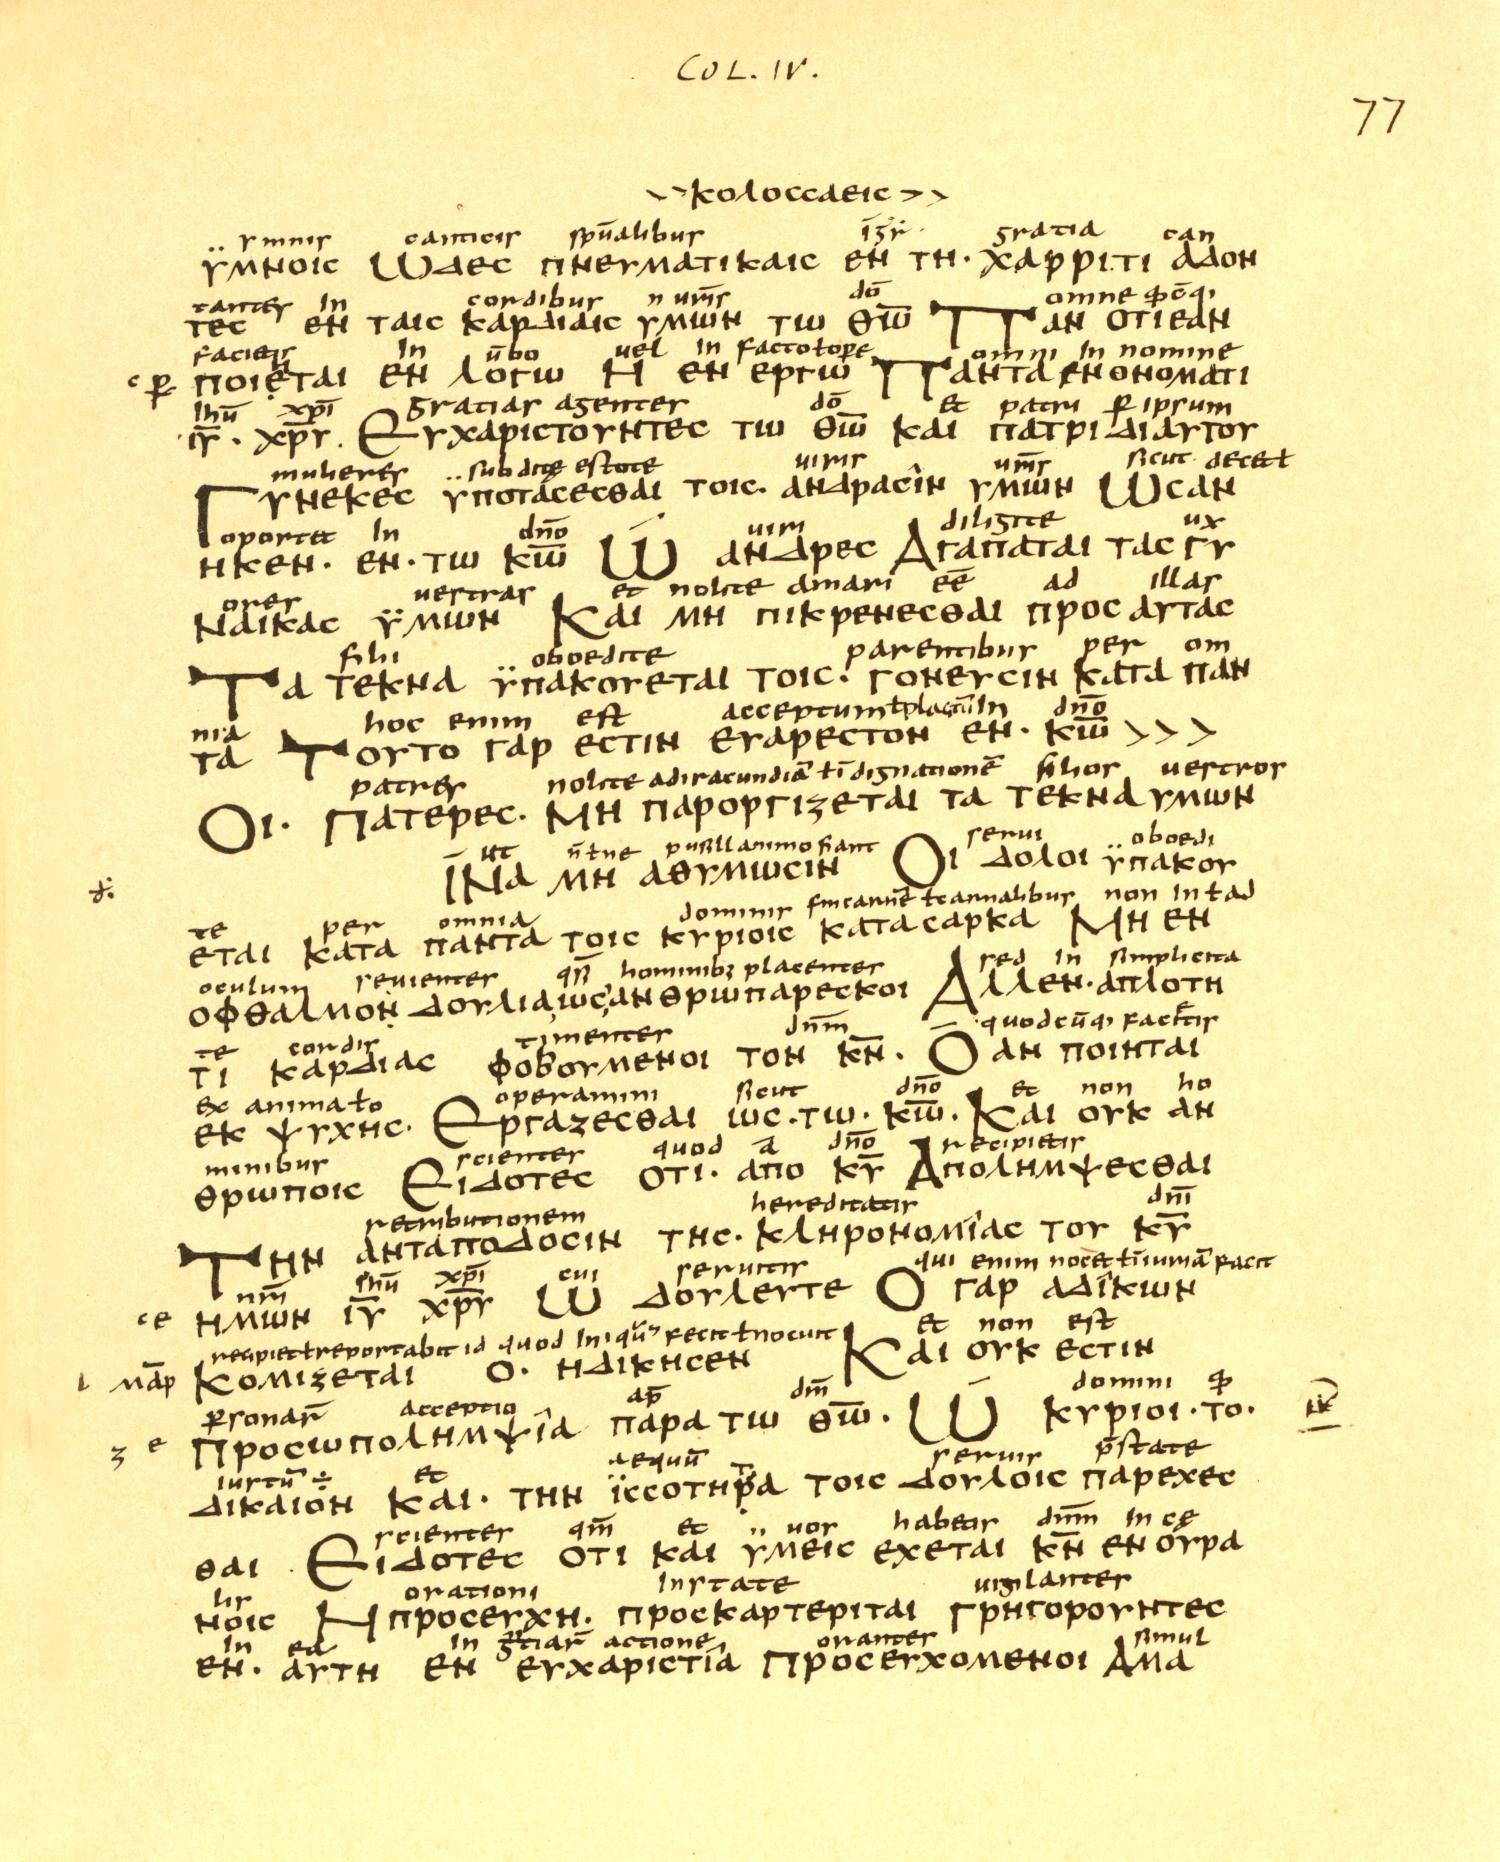 COL. IV.
77
κολοσσαεις
ymnis canticis spūalibus gratia can
ϋμνοις ωδες πνευματικαις εν τη· χαρριτι αδον
tantes in cordibus uris dō omne
τες εν ταις καρδιαις υμων τω θ̅ω̅ Παν οτι εαν
facitis in ūbo uel in facto ł ope omni in nomine
ποιηται εν λογω Η εν εργω Παντα εν ονοματι
ihū xpī gratias agentes dō et patri p ipsum
ι̅υ̅· χ̅ρ̅υ̅. Ευχαριστουντες τω θ̅ω̅ και πατρι διαυτου
mulieres subditę estote uiris ūrs sicut decet ł
Γυνεκες υποτασεσθαι τοις· ανδρασιν υμων Ωσαν
oportet in dn̄o uiri diligite ux
ηκεν· εν·τω κ̅ω̅ Ω ανδρες Αγαπαται τας γυ
ores uestras et nolite amari eē ad illas
ναικας ϋμων Και μη πικρενεσθαι προς αυτας
filii oboedite parentibus per om
Τα τεκνα ϋπακουεται τοις· γονευσιν κατα παν
nia hoc enim est acceptum ł placitū in dn̄o
τα Τουτο γαρ εστιν ευαρεστον εν· κ̅ω̅ >>>
patres nolite ad iracundiā ł īdignationē filios uestros
Οι· Πατερες· Μη παροργιζεται τα τεκνα υμων
ut n̄ ł ne pusillanimo fiant serui oboedi
Ινα μη αθυμωσιν Οι δολοι ϋπακου
te per omnia dominis carnalibus non in ł ad
εται κατα παντα τοις κυριοις κατα σαρκα Μη εν
oculum seuientes qs̄i hominibʒ placentes sed in simplicita
οφθαλμον δουλια,ως,ανθρωπαρεσκοι Αλλεν·απλοτη
te cordis timentes dnm̄ quodcūqi facitis
τι καρδιας φοβουμενοι τον κ̅ν̅. Ο αν ποιηται
ex anima ł o operamini sicut dn̄o et non ho
εκ ψυχης· Εργαζεσθαι ως·τω· κ̅ω̅. Και ουκ αν
minibus scientes quod a dn̄o recipietis
θρωποις Ειδοτες οτι· απο κ̅υ̅ Απολημψεσθαι
retributionem hereditatis dnī
Την ανταποδοσιν της· κληρονομιας του κ̅υ̅
nr̄i ihū xpī cui seruitis qui enim nocet ł īiuriā facit
ημων ι̅υ̅ χ̅ρ̅υ̅ Ω δουλευτε Ο γαρ αδικων
recipiet ł reportabit id quod iniquē fecit ł nocuit et non est
κομιζεται ο· ηδικησεν Και ουκ εστιν
psonarū acceptio ap̄ dm̄ domini
Προσωπολημψια παρα τω θ̅ω̅. Ω κυριοι·το·
iustū ÷ et aequū seruis pstate
δικαιον και· την ϊσσοτητα τοις δουλοις παρεχες
scientes qm̄ et uos habetis dnm̄ in cę
θαι Ειδοτες οτι και ϋμεις εχεται κ̅ν̅ εν ουρα
lis orationi instate uigilantes
νοις Η προσευχη. προσκαρτεριται Γρηγορουντες
in ea in gtiarū actione orantes simul
εν· αυτη εν ευχαριστια Προσευχομενοι Αμα